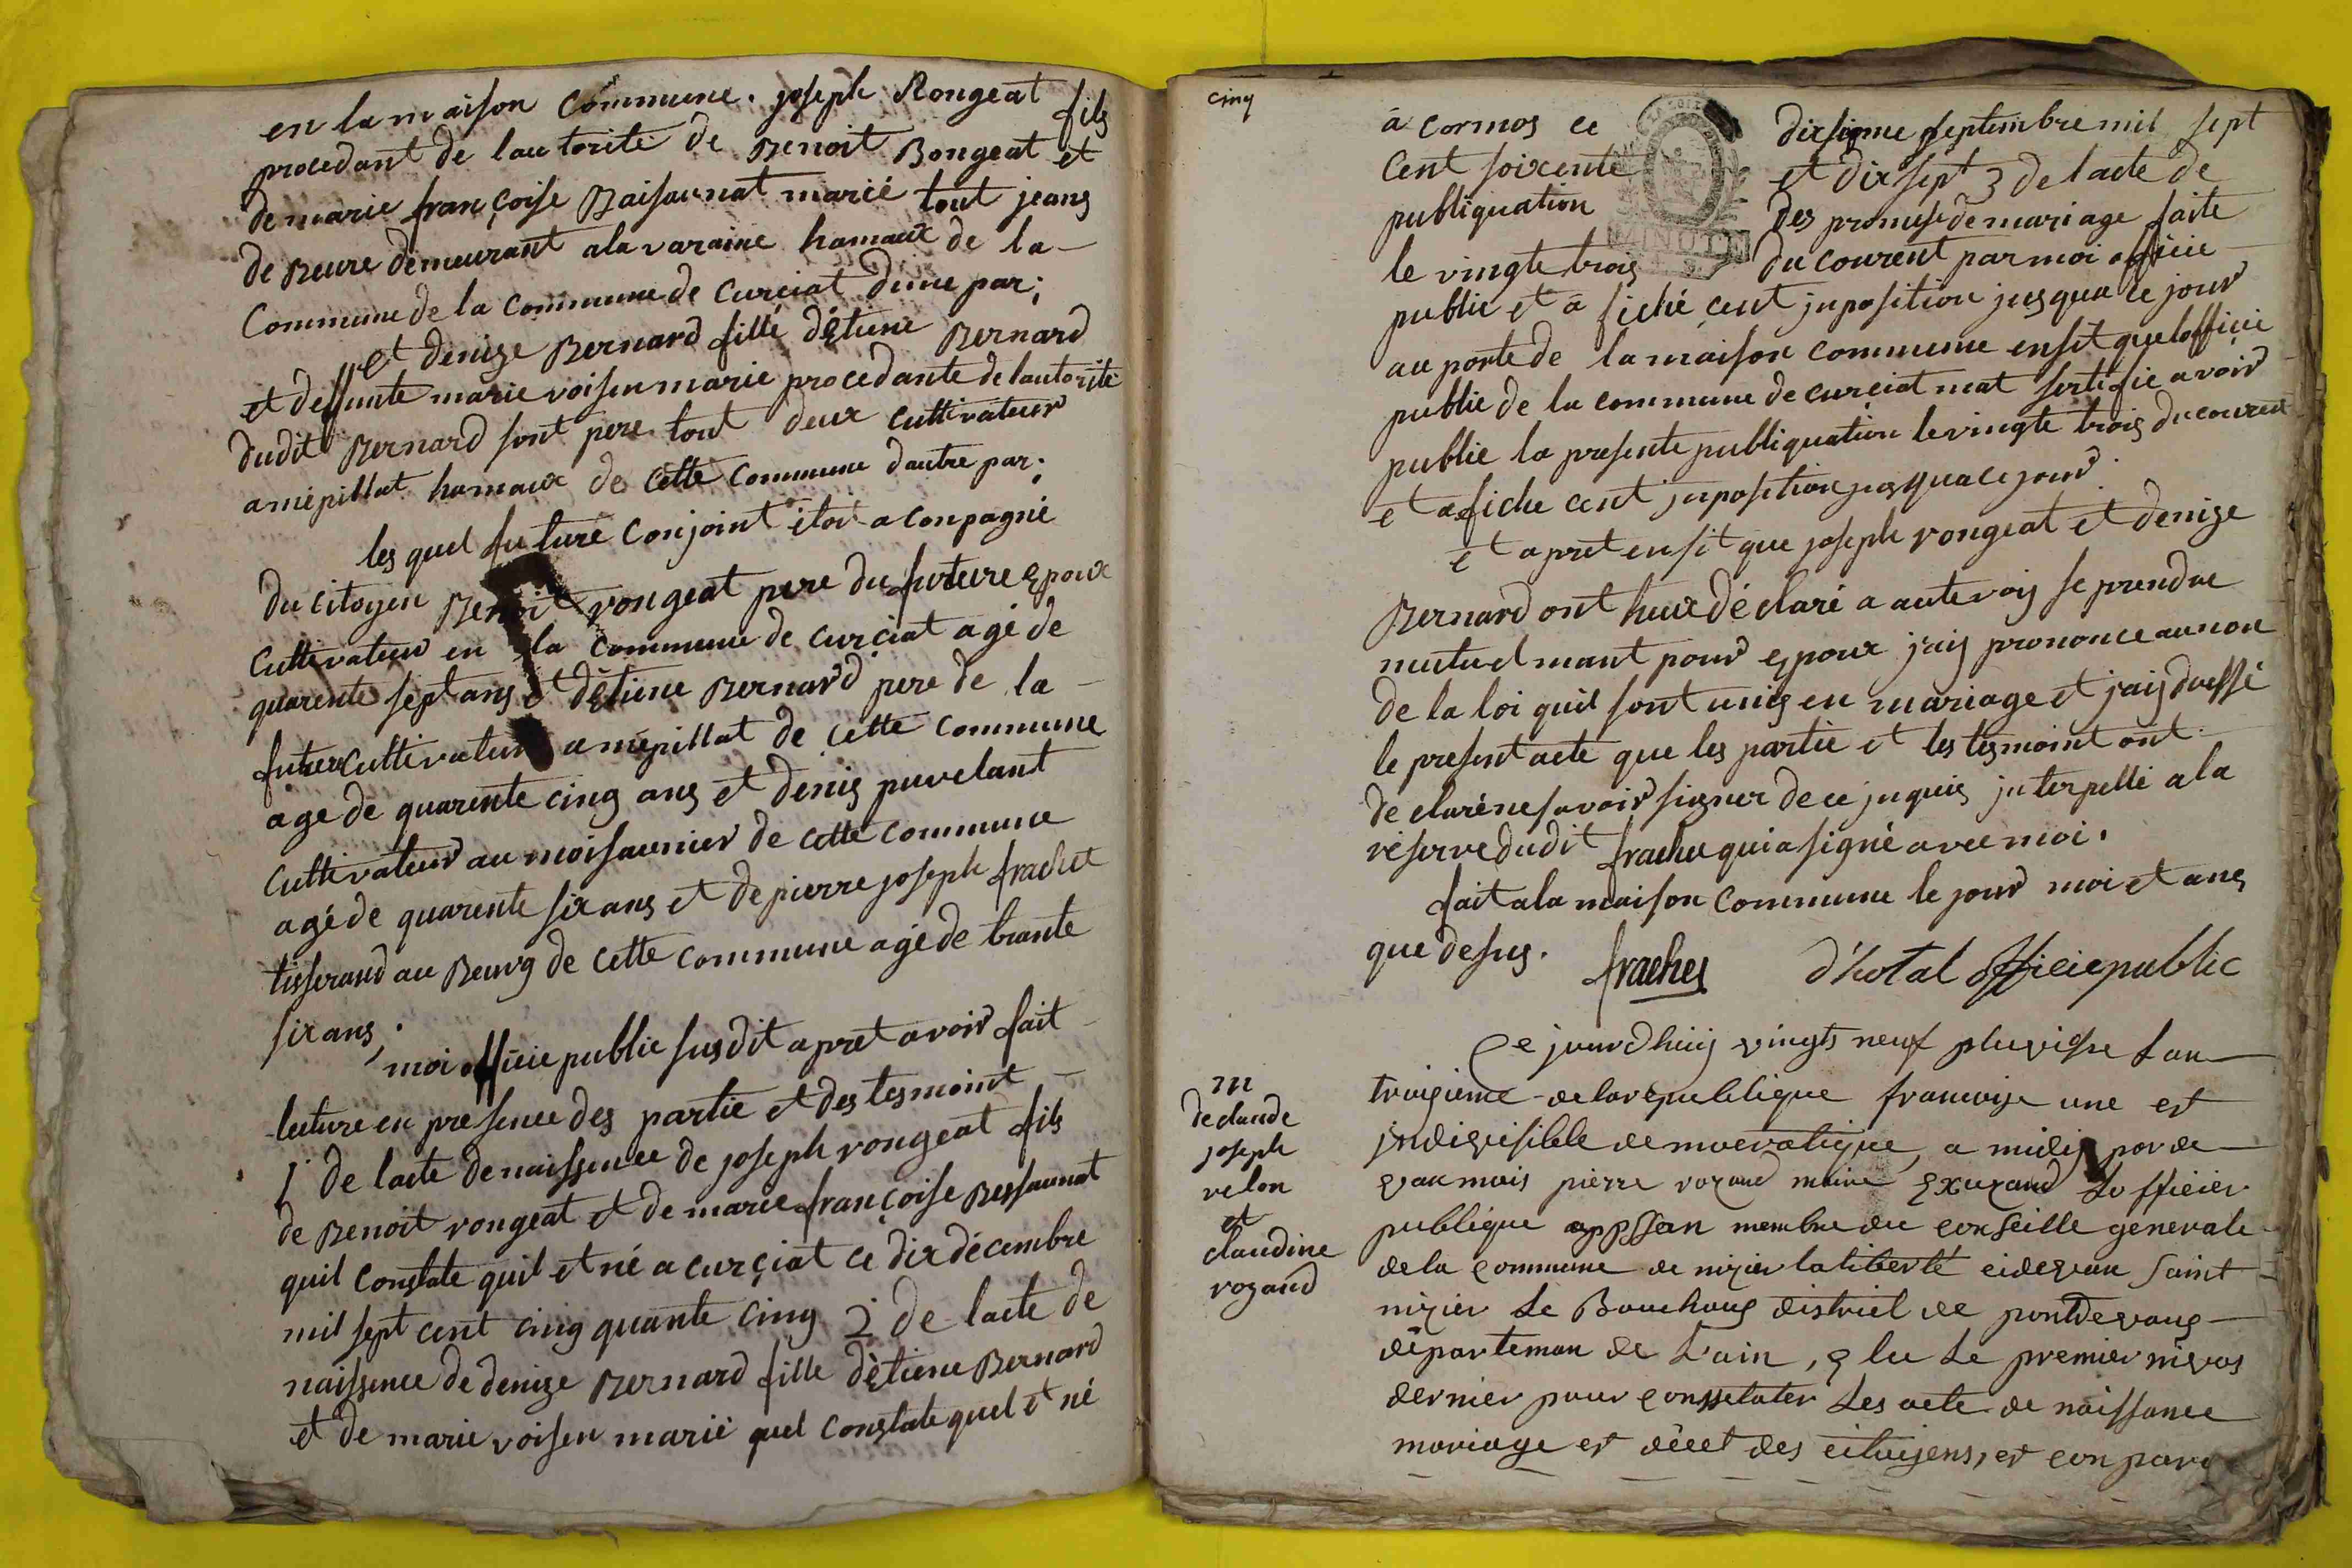 en la maison Commune. joseph Rongeat fils
procedant de lautorité de Benoit Bongeat et
de marie françoise Baisaunat marié tout jeans
de Beure demeurant ala varaine hamaux de la
Commune de la Commune de Curciat dune par;
et denize Bernard fille détiene Bernard
et deffunte marie voisen marie procedante de lautorité
dudit Bernard sont pere tout deux Cultivateur
a mépillat hamaux de Cette Commune dautre par;
les quel future Conjoint étoit aconpagné
du citoyen Benoit rongeat pere du future Epoux
Cultivateur en la Commune de Curciat agé de
quarente sept ans et détiene Bernard pere de la
future Cultivateur a mépillat de Cette Commune
age de quarente cinq ans et denis puvelant
Cultivateur au moisaunier de Cette Commune
agé de quarente six ans et de pierre joseph frachet
tisserand au Beurg de Cette Commune agé de trante
six ans,
moi officie public susdit apret avoir fait
lecture en presence des partie et des tesmoint
1 de lacte de naissence de joseph rongeat fils
de Benoit rongeat et de marie françoise Bessaunat
quil Constate quil et né a curçiat ce dix décembre
mil sept cent cinq quante cinq 2 de lacte de
naissence de denize Bernard fille détiene Bernard
et de marie voisen marié quel Constate quel et né
cinq
à cormos ce dixsiqme septembre mil sept
Cent soixente et dix sept 3 de lacte de
publiquation des promese de mariage faite
MINUTE
le vingte trois du courent par moi officie
public et a fiché cent jnposition jusqua ce jour
au porte de la maison commune ensit que lofficie
public de la commune de curciat mat sertifie avoir
publie la presente publiquation le vingte trois du courent
et afiche cent jnposition jusqua ce jour.
et apret ensit que joseph rongeat et denize
Bernard ont heux déclaré a autevois se prendre
mutuel mant pour Epoux jais prononce au non
de la loi quil sont unis en mariage et jais dressé
le present acte que les partie et les tesmoint ont
de claré ne savoir signer de ce juquis jnterpellé a la
reserve dudit frachet qui a signé avec moi.
fait a la maison Commune le jour moi et ans
que desus.
frachet d'hotal officie public
m
de claude
joseph
velon
et
claudine
rozand
Ce jourdhuij vingts neuf pluviose Lan
troizieme de la republique francoise une et
jndivisible democratique, a midij par de
van mois pierre rozand maire Exerçand Lofficier
publique membre du conseille generale
de la commune de nizier la liberté cidevan Saint
nizier Le Bouchoux district de pontdevaux
départeman de L'ain, elu Le premier nivos
dernier pour consstater Les acte de naissance
mariage et décet des citoijens, et con paru